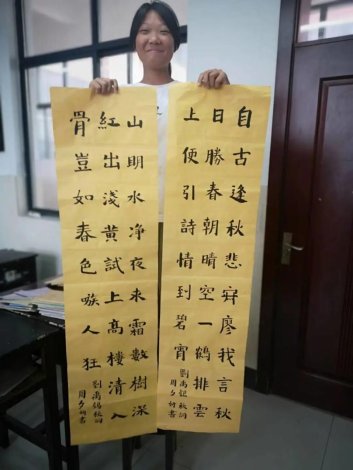 自古逢秋悲寂寥我言秋
日勝春朝晴空一鶴排雲
上便引詩情到碧霄
劉禹錫秋词
周夕書
山明水净夜来霜數樹深
紅出淺黃試上高樓清入
骨豈如春色嗾人狂
劉禹錫秋词
周夕書